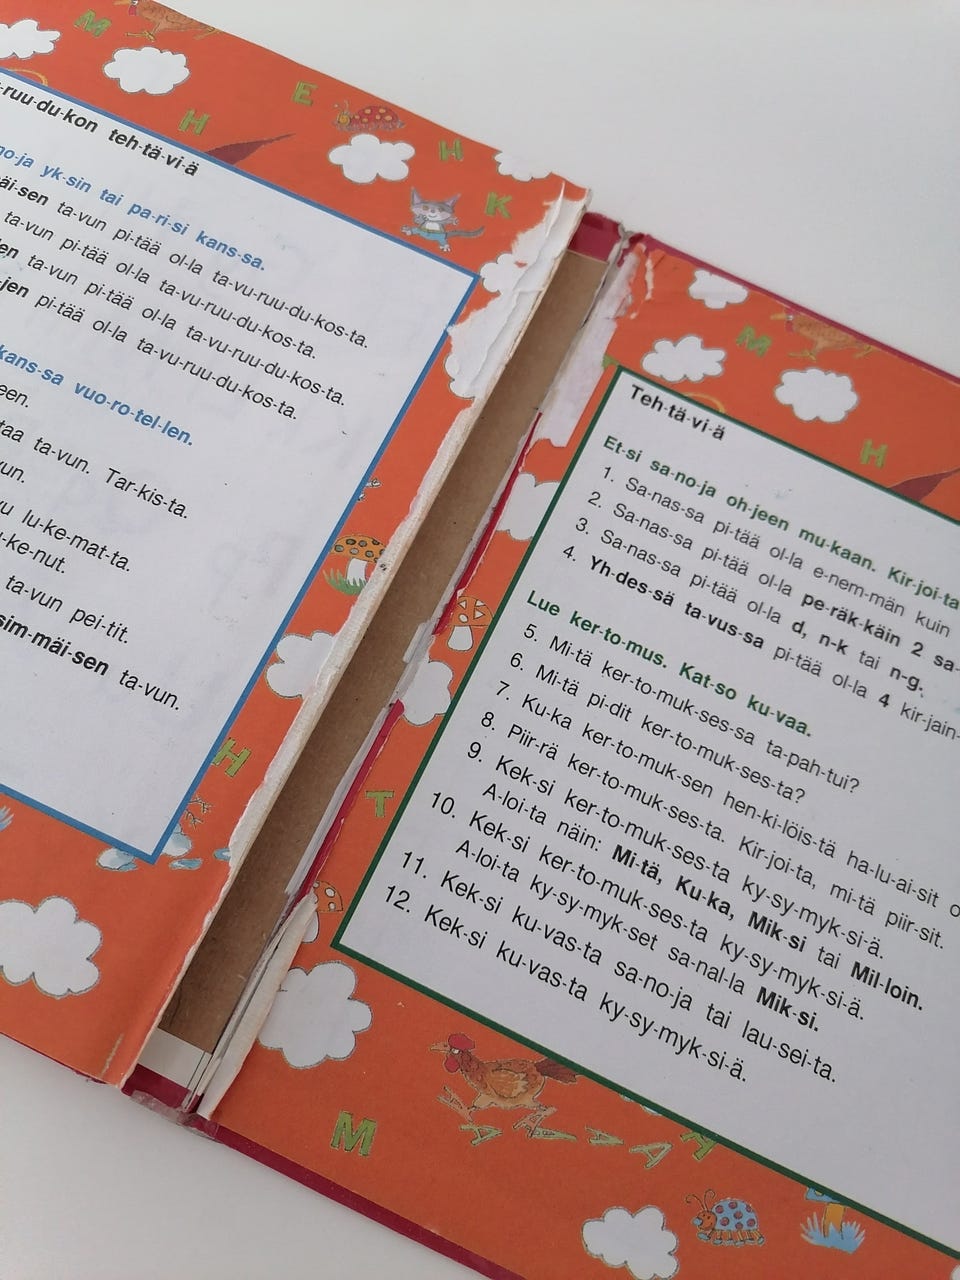 ruu-du-kon teh-tä-vi-ä
yk-sin tai pa-ri-si kans-sa.
ta-vun pi-tää ol-la ta-vu-ruu-du-kos-ta.
ta-vun pi-tää ol-la ta-vu-ruu-du-kos-ta.
ta-vun pi-tää ol-la ta-vu-ruu-du-kos-ta.
pi-tää ol-la ta-vu-ruu-du-kos-ta.
kans-sa vuo-ro-tel-len.
ta-vun. Tar-kis-ta.
lu-ke-mat-ta.
ta-vun pei-tit.
ta-vun.
Teh-tä-vi-ä
Et-si sa-no-ja oh-jeen mu-kaan. Kir-joi-ta
1. Sa-nas-sa pi-tää ol-la e-nem-män kuin
2. Sa-nas-sa pi-tää ol-la pe-räk-käin 2 sa-
3. Sa-nas-sa pi-tää ol-la d, n-k tai n-g.
4. Yh-des-sä ta-vus-sa pi-tää ol-la 4 kir-jain-
Lue ker-to-mus. Kat-so ku-vaa.
5. Mi-tä ker-to-muk-ses-sa ta-pah-tui?
6. Mi-tä pi-dit ker-to-muk-ses-ta?
7. Ku-ka ker-to-muk-sen hen-ki-löis-tä ha-lu-ai-sit o
8. Piir-rä ker-to-muk-ses-ta. Kir-joi-ta, mi-tä piir-sit.
9. Kek-si ker-to-muk-ses-ta ky-sy-myk-si-ä.
A-loi-ta näin: Mi-tä, Ku-ka, Mik-si tai Mil-loin.
10. Kek-si ker-to-muk-ses-ta ky-sy-myk-si-ä.
A-loi-ta ky-sy-myk-set sa-nal-la Mik-si.
11. Kek-si ku-vas-ta sa-no-ja tai lau-sei-ta.
12. Kek-si ku-vas-ta ky-sy-myk-si-ä.